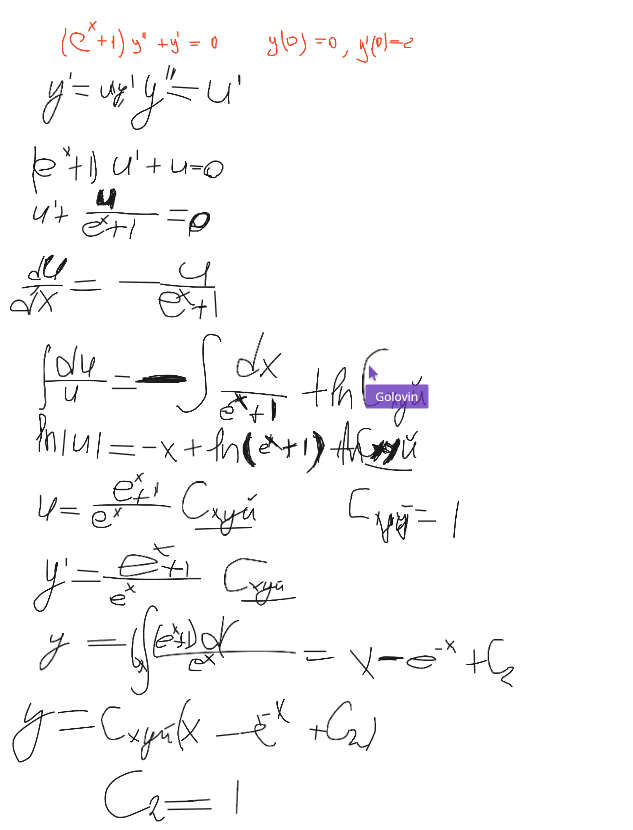 (e^x+1) y'' + y' = 0 y(0) = 0, y'(0)=2
y' = u y'' = u'
(e^x+1) u' + u = 0
u' + u/(e^x+1) = 0
du/dx = - u/(e^x+1)
∫ du/u = - ∫ dx/(e^x+1) + ln C_хуй
Golovin
ln|u| = -x + ln(e^x+1) + ln C_хуй
u = (e^x+1)/e^x C_хуй C_хуй = 1
y' = (e^x+1)/e^x C_хуй
y = ∫ (e^x+1)d/e^x = x - e^-x + C_2
y = C_хуй(x - e^-x + C_2)
C_2 = 1